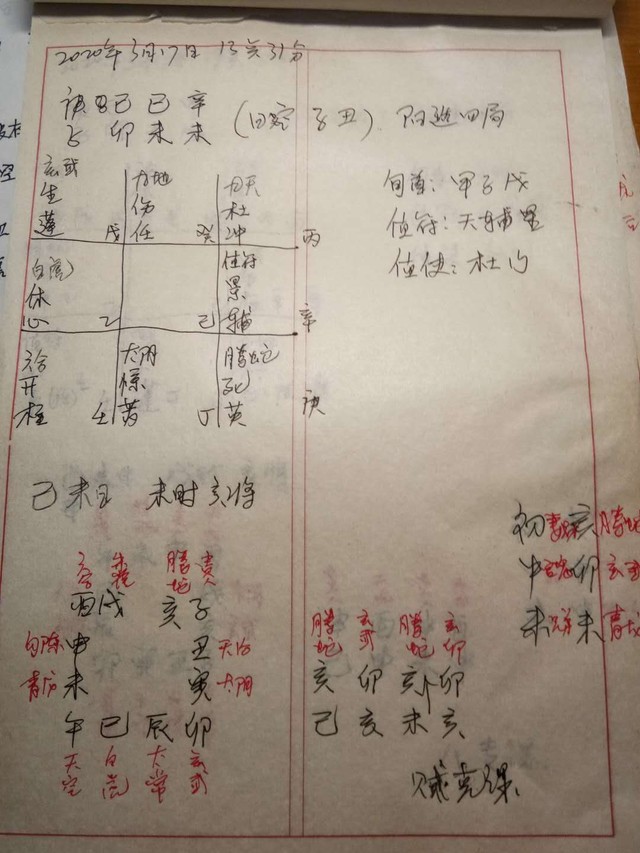 2020年3月17日 13点31分
庚 己 己 辛
子 卯 未 未
(日空 子丑) 阳遁四局
旬首：甲子戊
值符：天辅星
值使：杜门
玄武 九地 九天
生 伤 杜
蓬 戊 任 癸 冲 丙
白虎 值符
休 景
心 乙 己 辅 辛
六合 太阴 腾蛇
开 惊 死
柱 壬 芮 丁 英 庚
己未日 未时亥将
六合 朱雀 腾蛇 贵人
酉 戌 亥 子
勾陈 申 丑 天后
青龙 未 寅 太阴
午 巳 辰 卯
天空 白虎 太常 玄武
初 亥 腾蛇
中 卯 玄武
末 未 青龙
腾蛇 玄武 腾蛇
亥 卯 亥 卯
己 亥 未 亥
贼克课